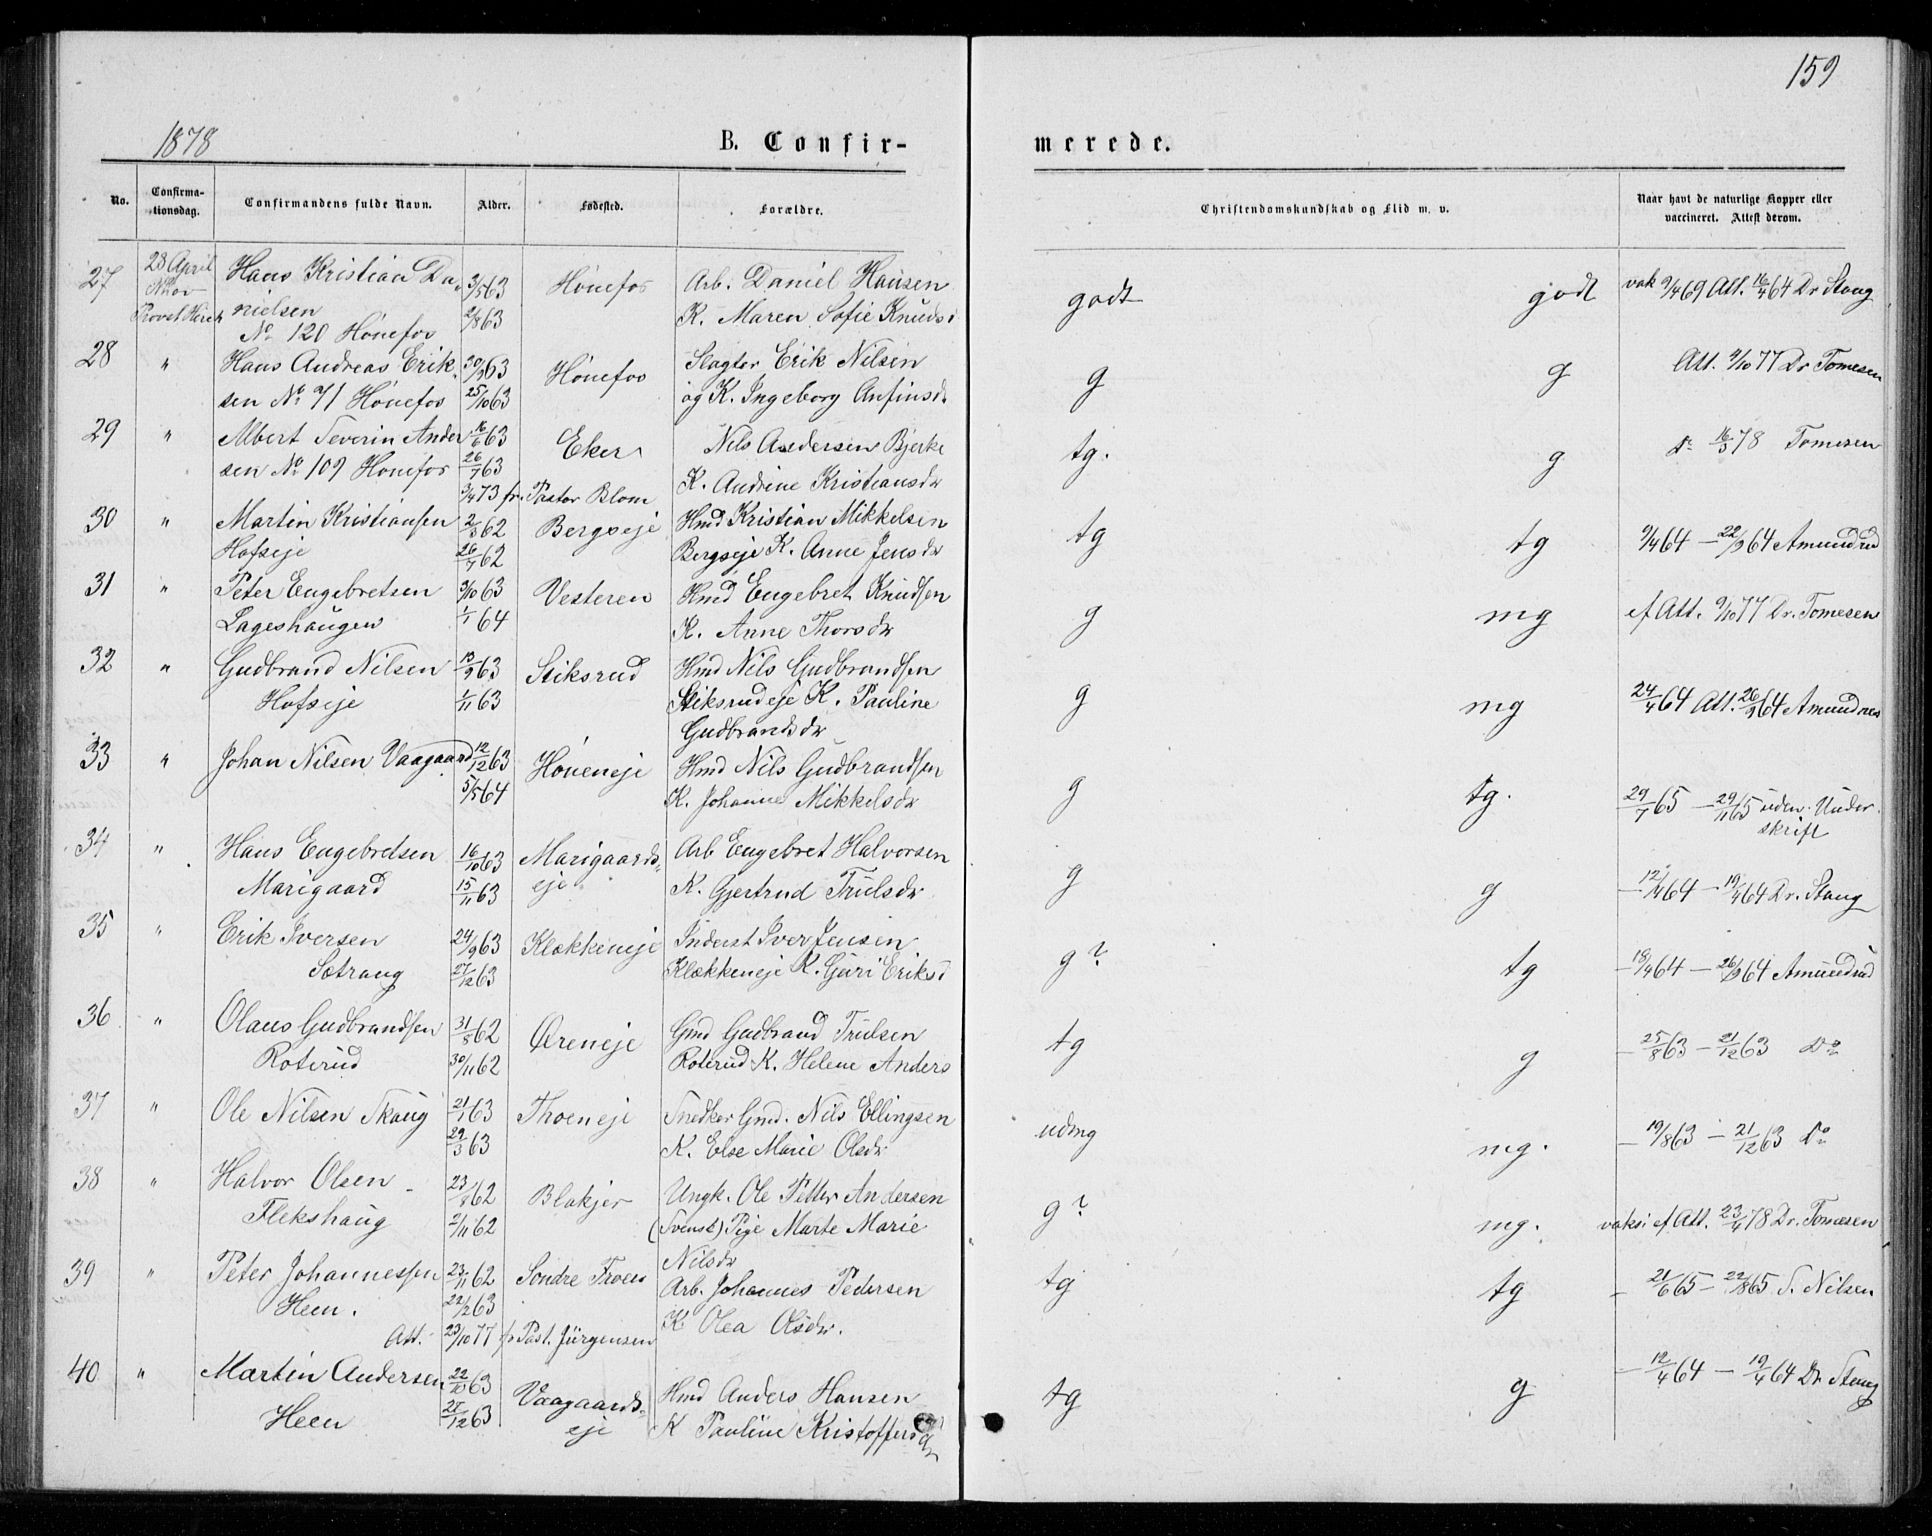 159
1878
B. Confir-
merede.
No.
Confirma-
tionsdag.
Confirmandens fulde Navn.
Alder.
Fødested.
Forældre.
Christendomskundskab og Flid m. v.
Naar havt de naturlige Kopper eller
vaccineret. Attest derom.
27 28 April Hans Kristian Da- 3/5 63 Hønefos Arb. Daniel Hansen godt godt vak 9/4 69 Att. 16/4 64 Dr Stang
nielsen 2/8 63 K. Maren Sofie Knudsd
No 120 Hønefos
28 " Hans Andreas Erik- 30/9 63 Hønefos Slagter Erik Nilsen g g Att. 9/10 77 Dr Tomesen
sen No 71 Hønefos 25/10 63 og K. Ingeborg Anfinsd.
29 " Albert Severin Ander 16/6 63 Eker Nils Andersen Bjerke tg. g do 16/3 78 Tomesen
sen No 109 Hønefos 26/7 63 K. Andrine Kristiansdr
3/4 73 fr. Pastor Blom
30 " Martin Kristiansen 2/3 62 Bergseje Hmd Kristian Mikkelsen tg tg 9/4 64 — 22/9 64 Amundrud
Hofseje 26/4 62 Bergseje K. Anne Jensdr
31 " Peter Engebretsen 9/10 63 Vesteren Hmd Engebret Knudsen g mg ef Att. 9/10 77 Dr. Tomesen
Lageshaugen 1/1 64 K. Anne Thorsdr
32 " Gudbrand Nilsen 13/9 63 Stiksrud Hmd Nils Gudbrandsen g mg 24/4 64 Att. 26/9 64
Hofseje 1/11 63 Stiksrudeje K. Pauline
Gudbrandsdr
33 " Johan Nilsen Vaagaard 12/12 63 Høneneje Hmd Nils Gudbrandsen g tg. 29/7 65 — 29/11 65 uden Under
5/5 64 K. Johanne Mikkelsdr skrift
34 " Hans Engebretsen 16/10 63 Marigaards- Arb Engebret Halvorsen g g — 12/4 64 — 19/4 64 Dr. Stang
Marigaard 15/11 63 eje K. Gjertrud Trulsdr
35 " Erik Iversen 24/9 63 Klækkeneje Inderst Iver Jensen g? tg — 18/4 64 — 26/9 64 Amundrud
Sætrang 27/12 63 Klækkeneje K. Guri Eriksd
36 " Olaus Gudbrandsen 31/8 62 Øreneje Gmd Gudbrand Trulsen tg g — 25/8 63 — 21/12 63 Do
Roterud 30/11 62 Roterud K. Helene Anders
37 " Ole Nilsen Skaug 21/1 63 Thoeneje Snedker Gmd. Nils Ellingsen udmg mg. — 19/8 63 — 21/12 63 Do
29/3 63 K. Else Marie Olsdr
38 " Halvor Olsen 23/8 62 Blakjer Ungk. Ole Petter Andersen g? mg. vaksi ef Att. 23/4 78 Dr. Tomesen
Flekshaug 2/11 62 (Svensk) Pige Marte Marie
Nilsdr
39 " Peter Johannessen 23/11 62 Søndre Arb. Johannes Pedersen tg tg — 21/6 65 — 22/8 65 S. Nilsen
Heen. 22/2 63 K Olea Olsdr.
Att. 23/10 77 fr Past. Jürgensen
40 " Martin Andersen 22/10 63 Vaagaards- Hmd Anders Hansen tg g — 12/4 64 — 19/4 64 Dr. Stang
Heen 27/12 63 eje K Pauline Kristoffersdr